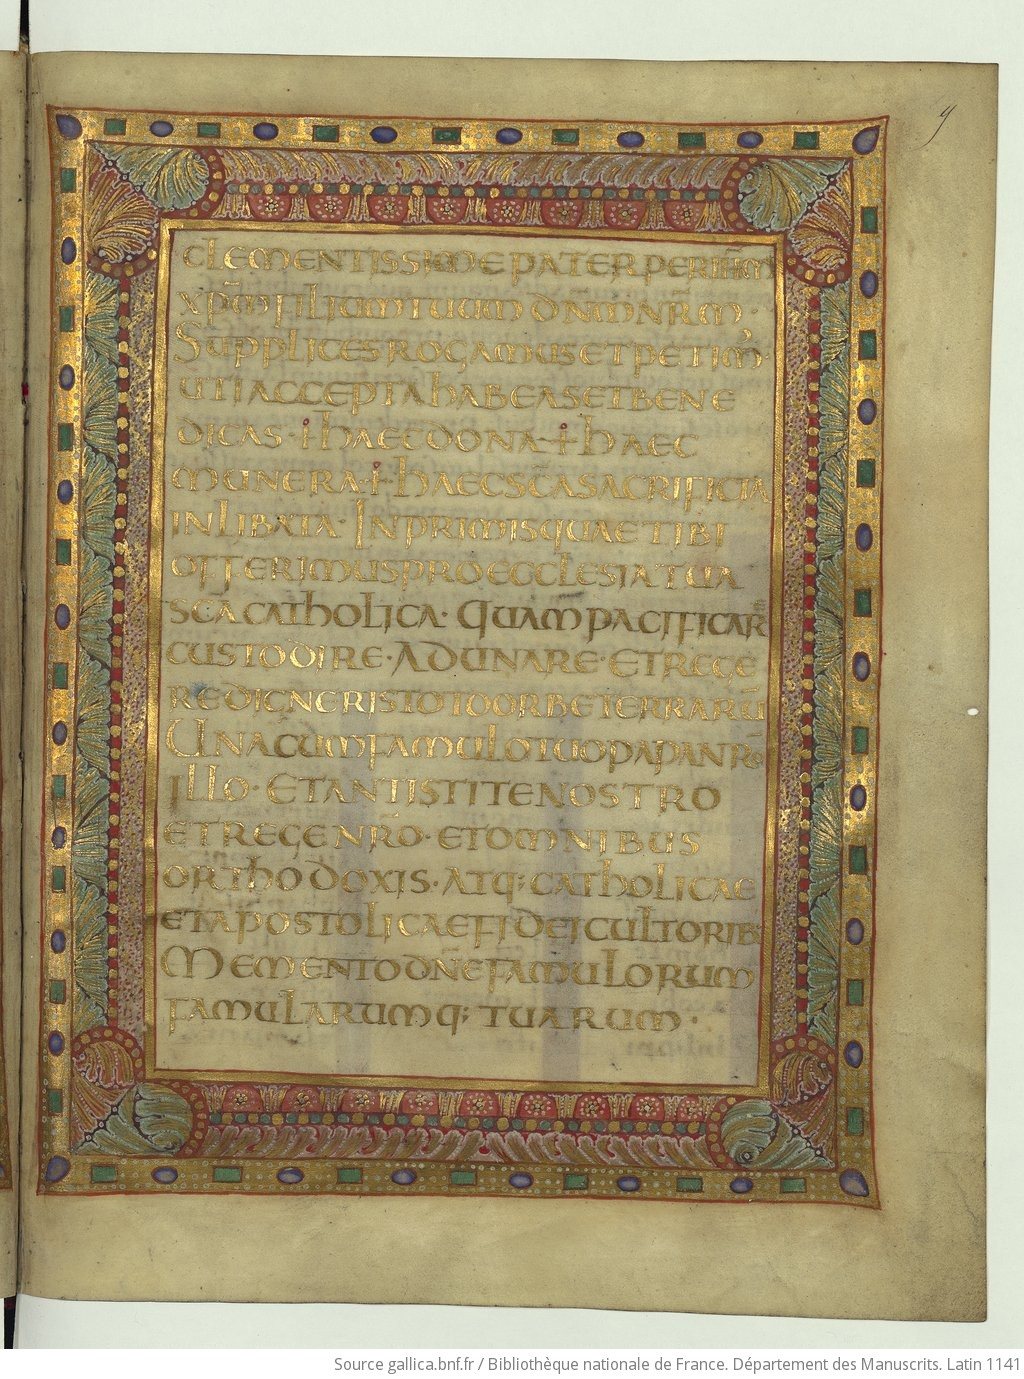 9
CLEMENTISSIME PATER PER IHM̄
XPM̄ FILIUM TUUM DNM̄ NR̄M·
SUPPLICES ROGAMUS ET PETIM̄·
UTI ACCEPTA HABEAS ET BENE
DICAS· ✝ HAEC DONA· ✝ HAEC
MUNERA· ✝ HAEC SC̄A SACRIFICIA
INLIBATA· IN PRIMIS QUAE TIBI
OFFERIMUS PRO ECCLESIA TUA
SC̄A CATHOLICA· QUAM̄ PACIFICAR̄
CUSTODIRE· ADUNARE· ET REGE
RE DIGNERIS TOTO ORBE TERRARŪ
UNA CUM FAMULO TUO PAPA NR̄O
ILLO· ET ANTISTITE NOSTRO
ET REGE NR̄O· ET OMNIBUS
ORTHODOXIS· ATQ; CATHOLICAE
ET APOSTOLICAE FIDEI CULTORIB;
MEMENTO DN̄E FAMULORUM
FAMULARUMQ; TUARUM·
Source gallica.bnf.fr / Bibliothèque nationale de France. Département des Manuscrits. Latin 1141